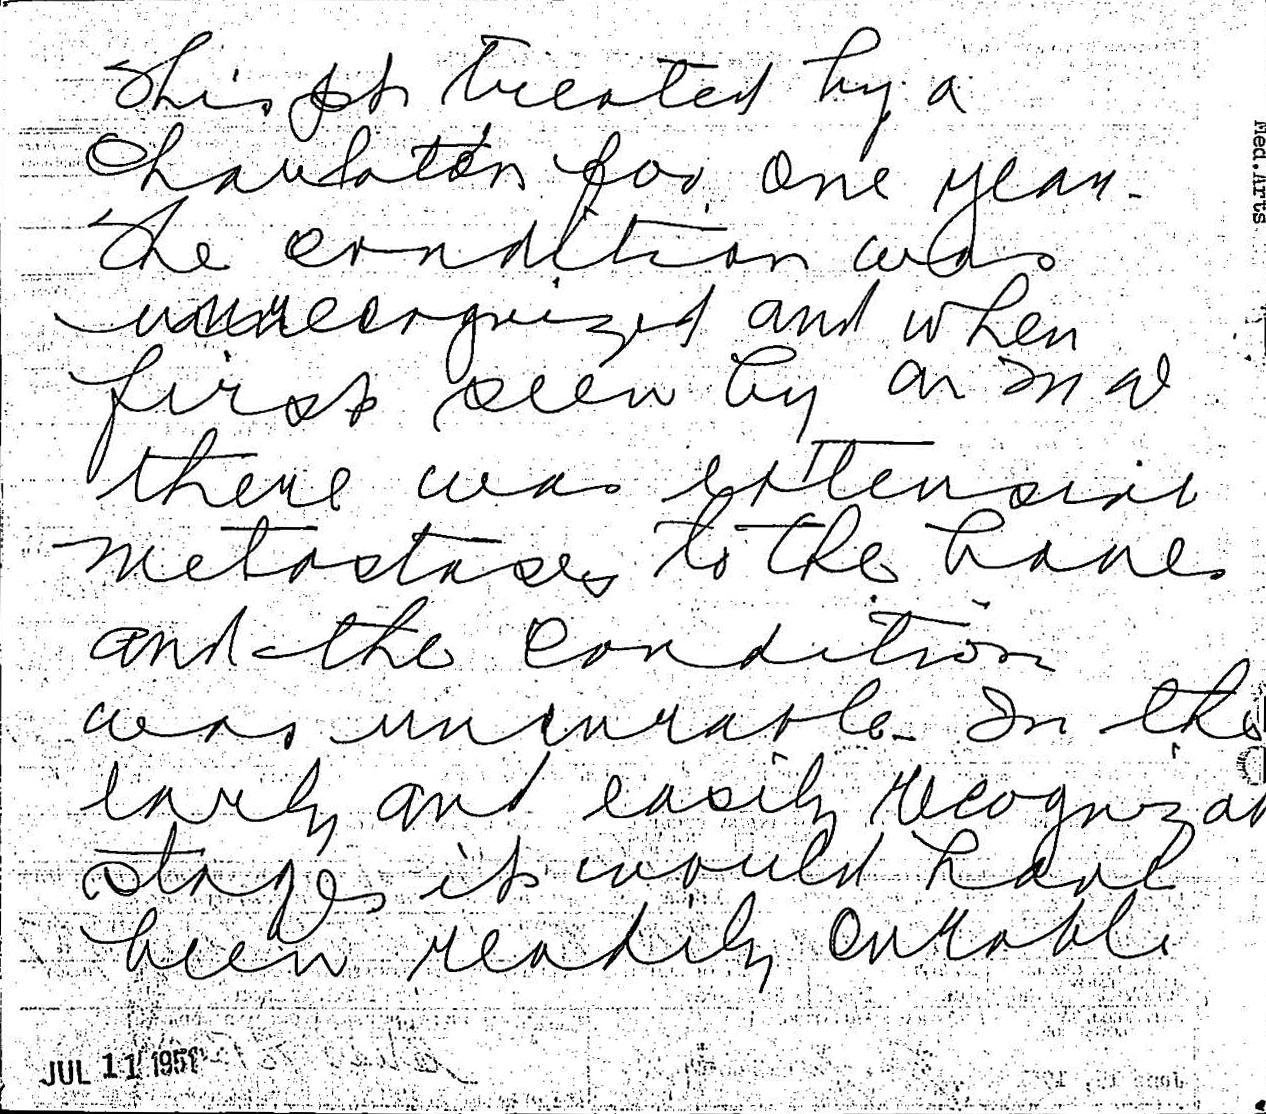 This pt treated by a
Charlatan for one year.
The condition was
unrecognized and when
first seen by an MD
there was extensive
metastases to the bones
and the condition
was uncurable. In the
early and easily recogniza
stages it would have
been readily curable
JUL 11 195
Med. Arts